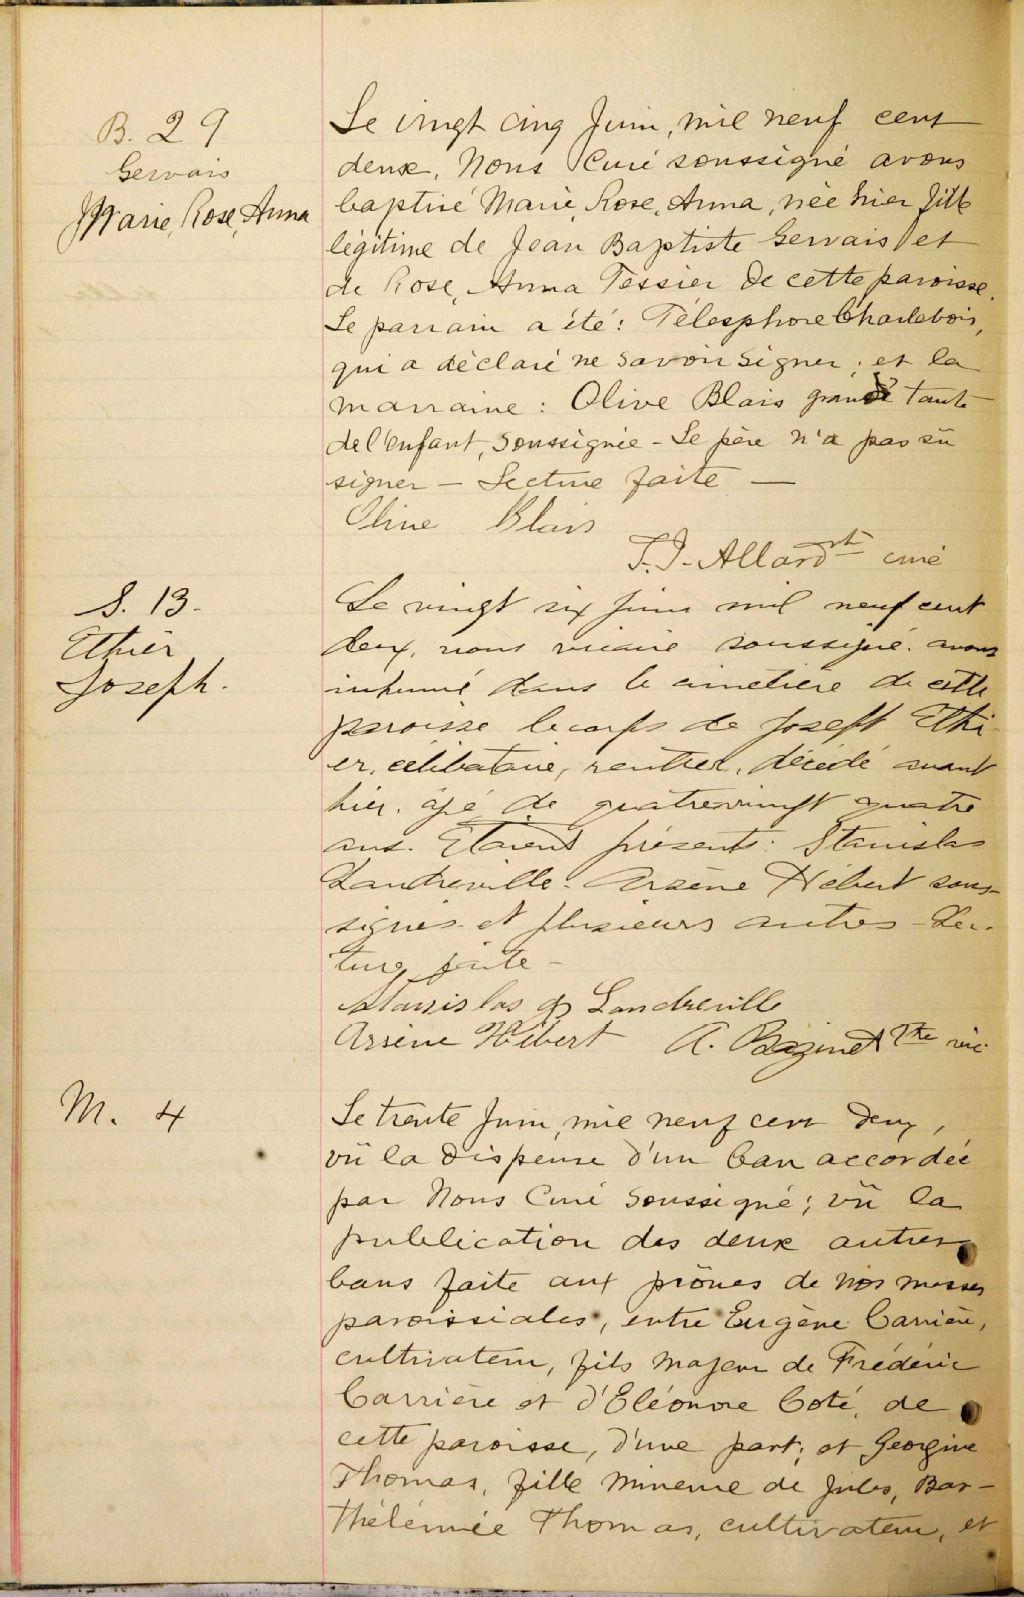 B. 29
Gervais
Marie, Rose, Anna
Le vingt cinq Juin, mil neuf cent
deux, Nous Curé soussigné avons
baptisé Marie, Rose, Anna, née hier fille
légitime de Jean Baptiste Gervais et
de Rose, Anna Tessier de cette paroisse.
Le parrain a été: Télesphore Charlebois,
qui a déclaré ne savoir signer; et la
marraine: Olive Blais grande tante
de l'enfant, soussignée - Le père n'a pas sû
signer - Lecture faite -
Olive Blais
J. Allard ptre curé
S. 13.
Ethier
Joseph.
Le vingt six juin mil neuf cent
deux, nous vicaire soussigné. avons
inhumé dans le cimetière de cette
paroisse le corps de Joseph Ethi-
er, célibataire, rentier, décédé avant
hier. âgé de quatrevingt quatre
ans. Etaient présents: Stanislas
Landreville. Arsène Hébert sous-
signés et plusieurs autres - Lec-
ture faite -
Stanislas Landreville
Arsène Hébert A. Bazinet Ptre vic
M. 4
Le trente Juin, mil neuf cent deux,
vû la dispense d'un ban accordée
par Nous Curé soussigné; vû la
publication des deux autres
bans faite aux prônes de nos messes
paroissiales, entre Eugène Carrière,
cultivateur, fils majeur de Frédéric
Carrière et d'Eléonore Coté, de
cette paroisse, d'une part; et Georgine
Thomas, fille mineure de Jules, Bar-
thélémie Thomas, cultivateur, et